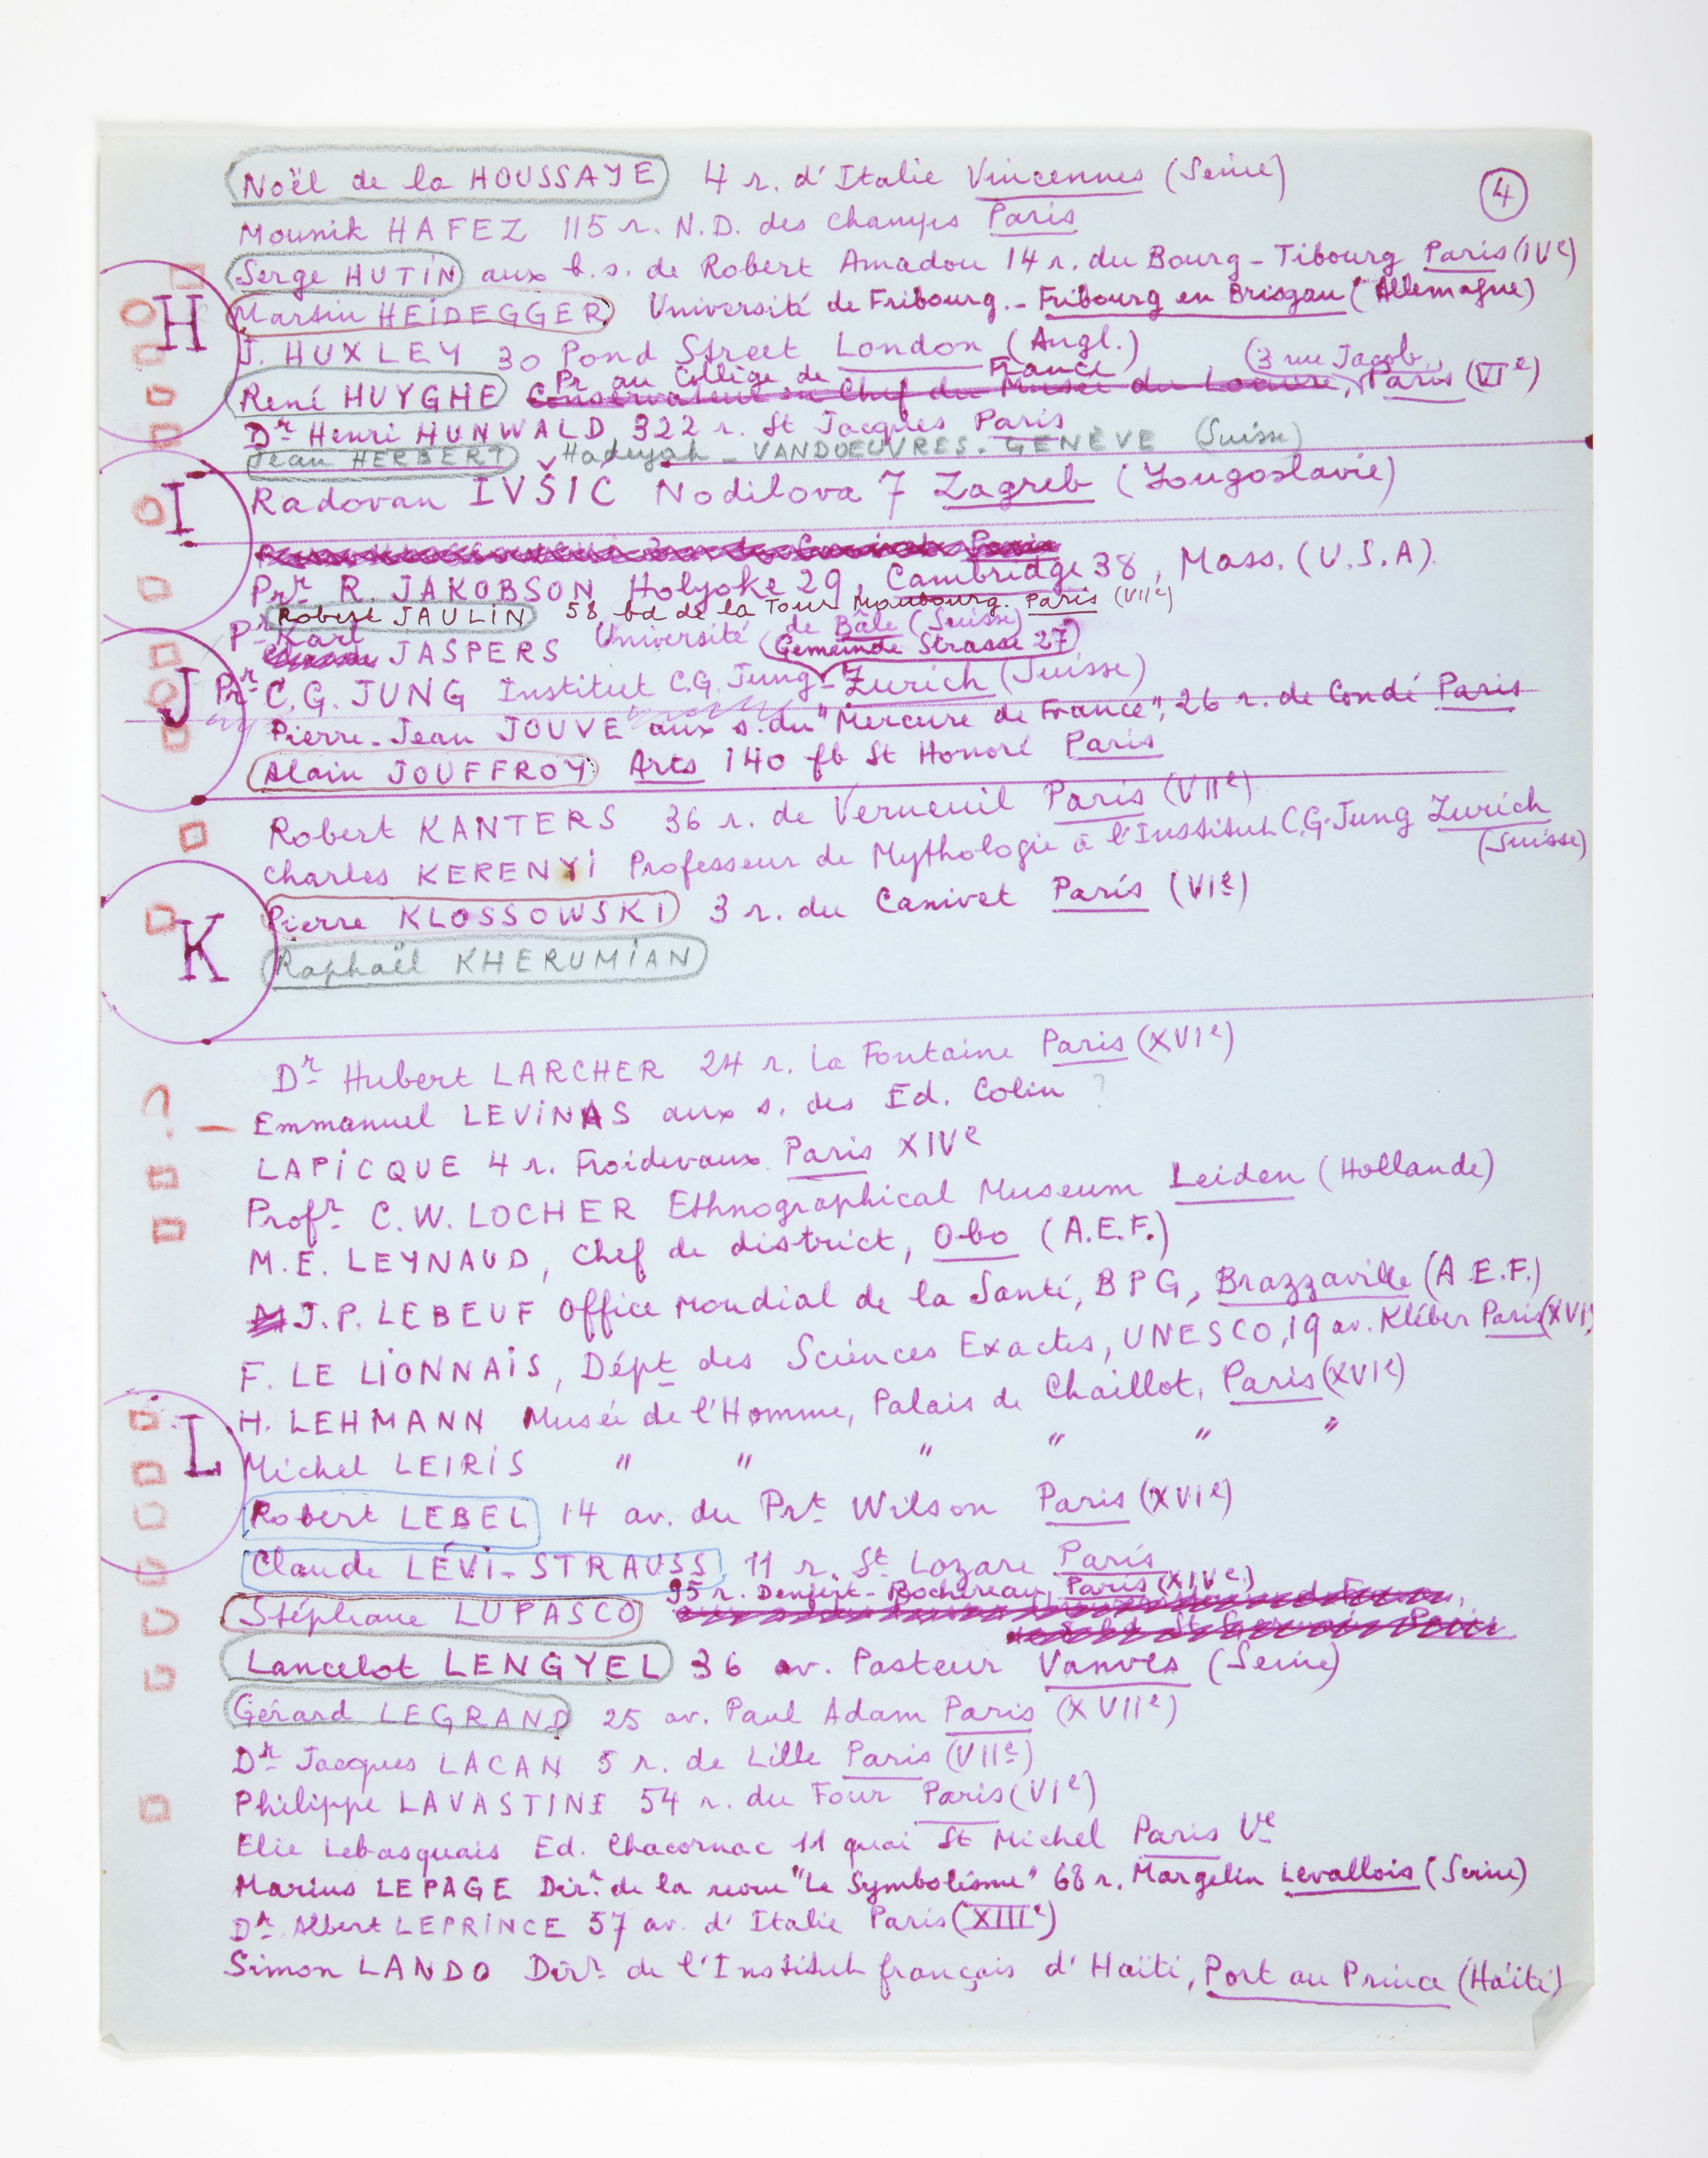 Noël de la HOUSSAYE 4 r. d'Italie Vincennes (Seine)
4
Mounik HAFEZ 115 r. N.D. des champs Paris
Serge HUTIN aux b.s. de Robert Amadou 14 r. du Bourg-Tibourg Paris (IVe)
H
Martin HEIDEGGER Université de Fribourg.- Fribourg en Brisgau (Allemagne)
J. HUXLEY 30 Pond Street London (Angl.)
(3 rue Jacob,
Pr au Collège de France
René HUYGHE Conservateur en Chef du Musée du Louvre, Paris (VIe)
Dr Henri HUNWALD 322 r. St Jacques Paris
Jean HERBERT Hadeyah - VANDOEUVRES. GENÈVE (Suisse)
I
Radovan IVŠIC Nodilova 7 Zagreb (Yougoslavie)
Pr. R. JAKOBSON Holyoke 29, Cambridge 38, Mass. (U.S.A).
Robert JAULIN 58 bd de la Tour Maubourg. Paris (VIIe)
Pr Karl JASPERS Université de Bâle (Suisse)
(Gemeinde Strasse 27)
J
Pr. C.G. JUNG Institut C.G. Jung - Zurich (Suisse)
Pierre-Jean JOUVE aux s. du "Mercure de France", 26 r. de Condé Paris
Alain JOUFFROY Arts 140 fb St Honoré Paris
Robert KANTERS 36 r. de Verneuil Paris (VIIe)
Charles KERENYI Professeur de Mythologie à l'Institut C.G. Jung Zurich
(Suisse)
K
Pierre KLOSSOWSKI 3 r. du Canivet Paris (VIe)
Raphaël KHERUMIAN
Dr Hubert LARCHER 24 r. La Fontaine Paris (XVIe)
?
Emmanuel LEVINAS aux s. des Ed. Colin ?
LAPICQUE 4 r. Froidevaux Paris XIVe
Profr. C.W. LOCHER Ethnographical Museum Leiden (Hollande)
M.E. LEYNAUD, Chef de district, Obo (A.E.F.)
J.P. LEBEUF Office mondial de la Santé, BPG, Brazzaville (A.E.F.)
F. LE LIONNAIS, Dépt des Sciences Exactes, UNESCO, 19 av. Kléber Paris (XVI
L
H. LEHMANN Musée de l'Homme, Palais de Chaillot, Paris (XVIe)
Michel LEIRIS " " " " " "
Robert LEBEL 14 av. du Prt Wilson Paris (XVIe)
Claude LÉVI-STRAUSS 11 r. St Lazare Paris
Stéphane LUPASCO 95 r. Denfert-Rochereau, Paris (XIVe)
Lancelot LENGYEL 36 av. Pasteur Vanves (Seine)
Gérard LEGRAND 25 av. Paul Adam Paris (XVIIe)
Dr Jacques LACAN 5 r. de Lille Paris (VIIe)
Philippe LAVASTINE 54 r. du Four Paris (VIe)
Elie Lebasquais Ed. Chacornac 11 quai St Michel Paris Ve
Marius LEPAGE Dir. de la revue "Le Symbolisme" 68 r. Margelin Levallois (Seine)
Dr. Albert LEPRINCE 57 av. d'Italie Paris (XIIIe)
Simon LANDO Dir. de l'Institut français d'Haïti, Port au Prince (Haïti)